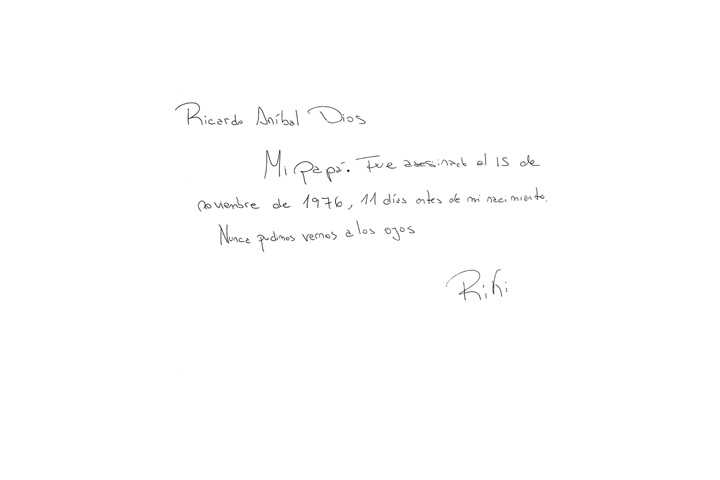 Ricardo Aníbal Dios
Mi papá. Fue asesinado el 15 de
noviembre de 1976, 11 días antes de mi nacimiento.
Nunca pudimos vernos a los ojos
Riki